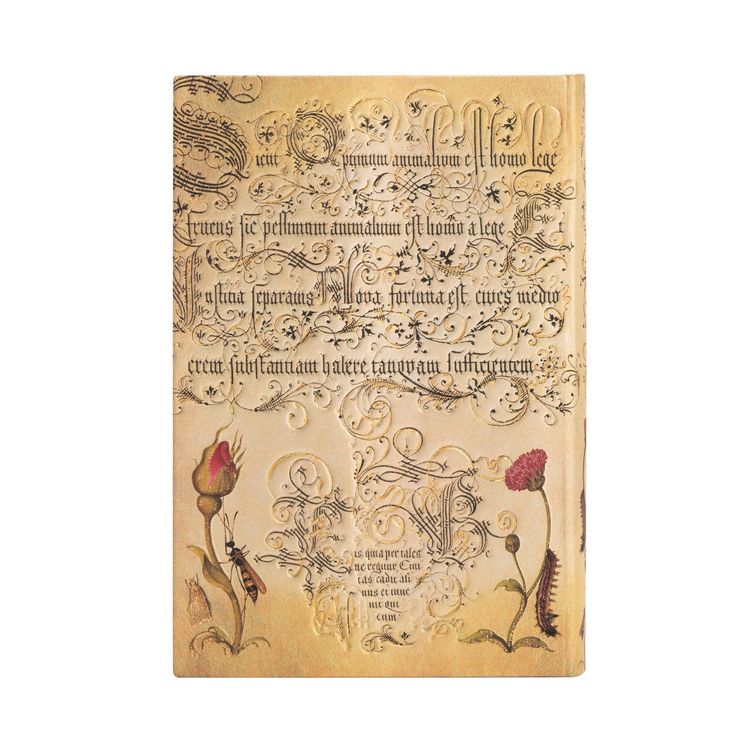 Sicut Optimum animalium est homo lege
fruens sic pessimum animalium est homo a lege E
Iustitia separatus Nova fortuna est cives medio
crem substantiam habere tanquam sufficientem
H B
is quia per tales e
ne regitur Civi
tas cadit ali
nus et inve
nit qui
cum